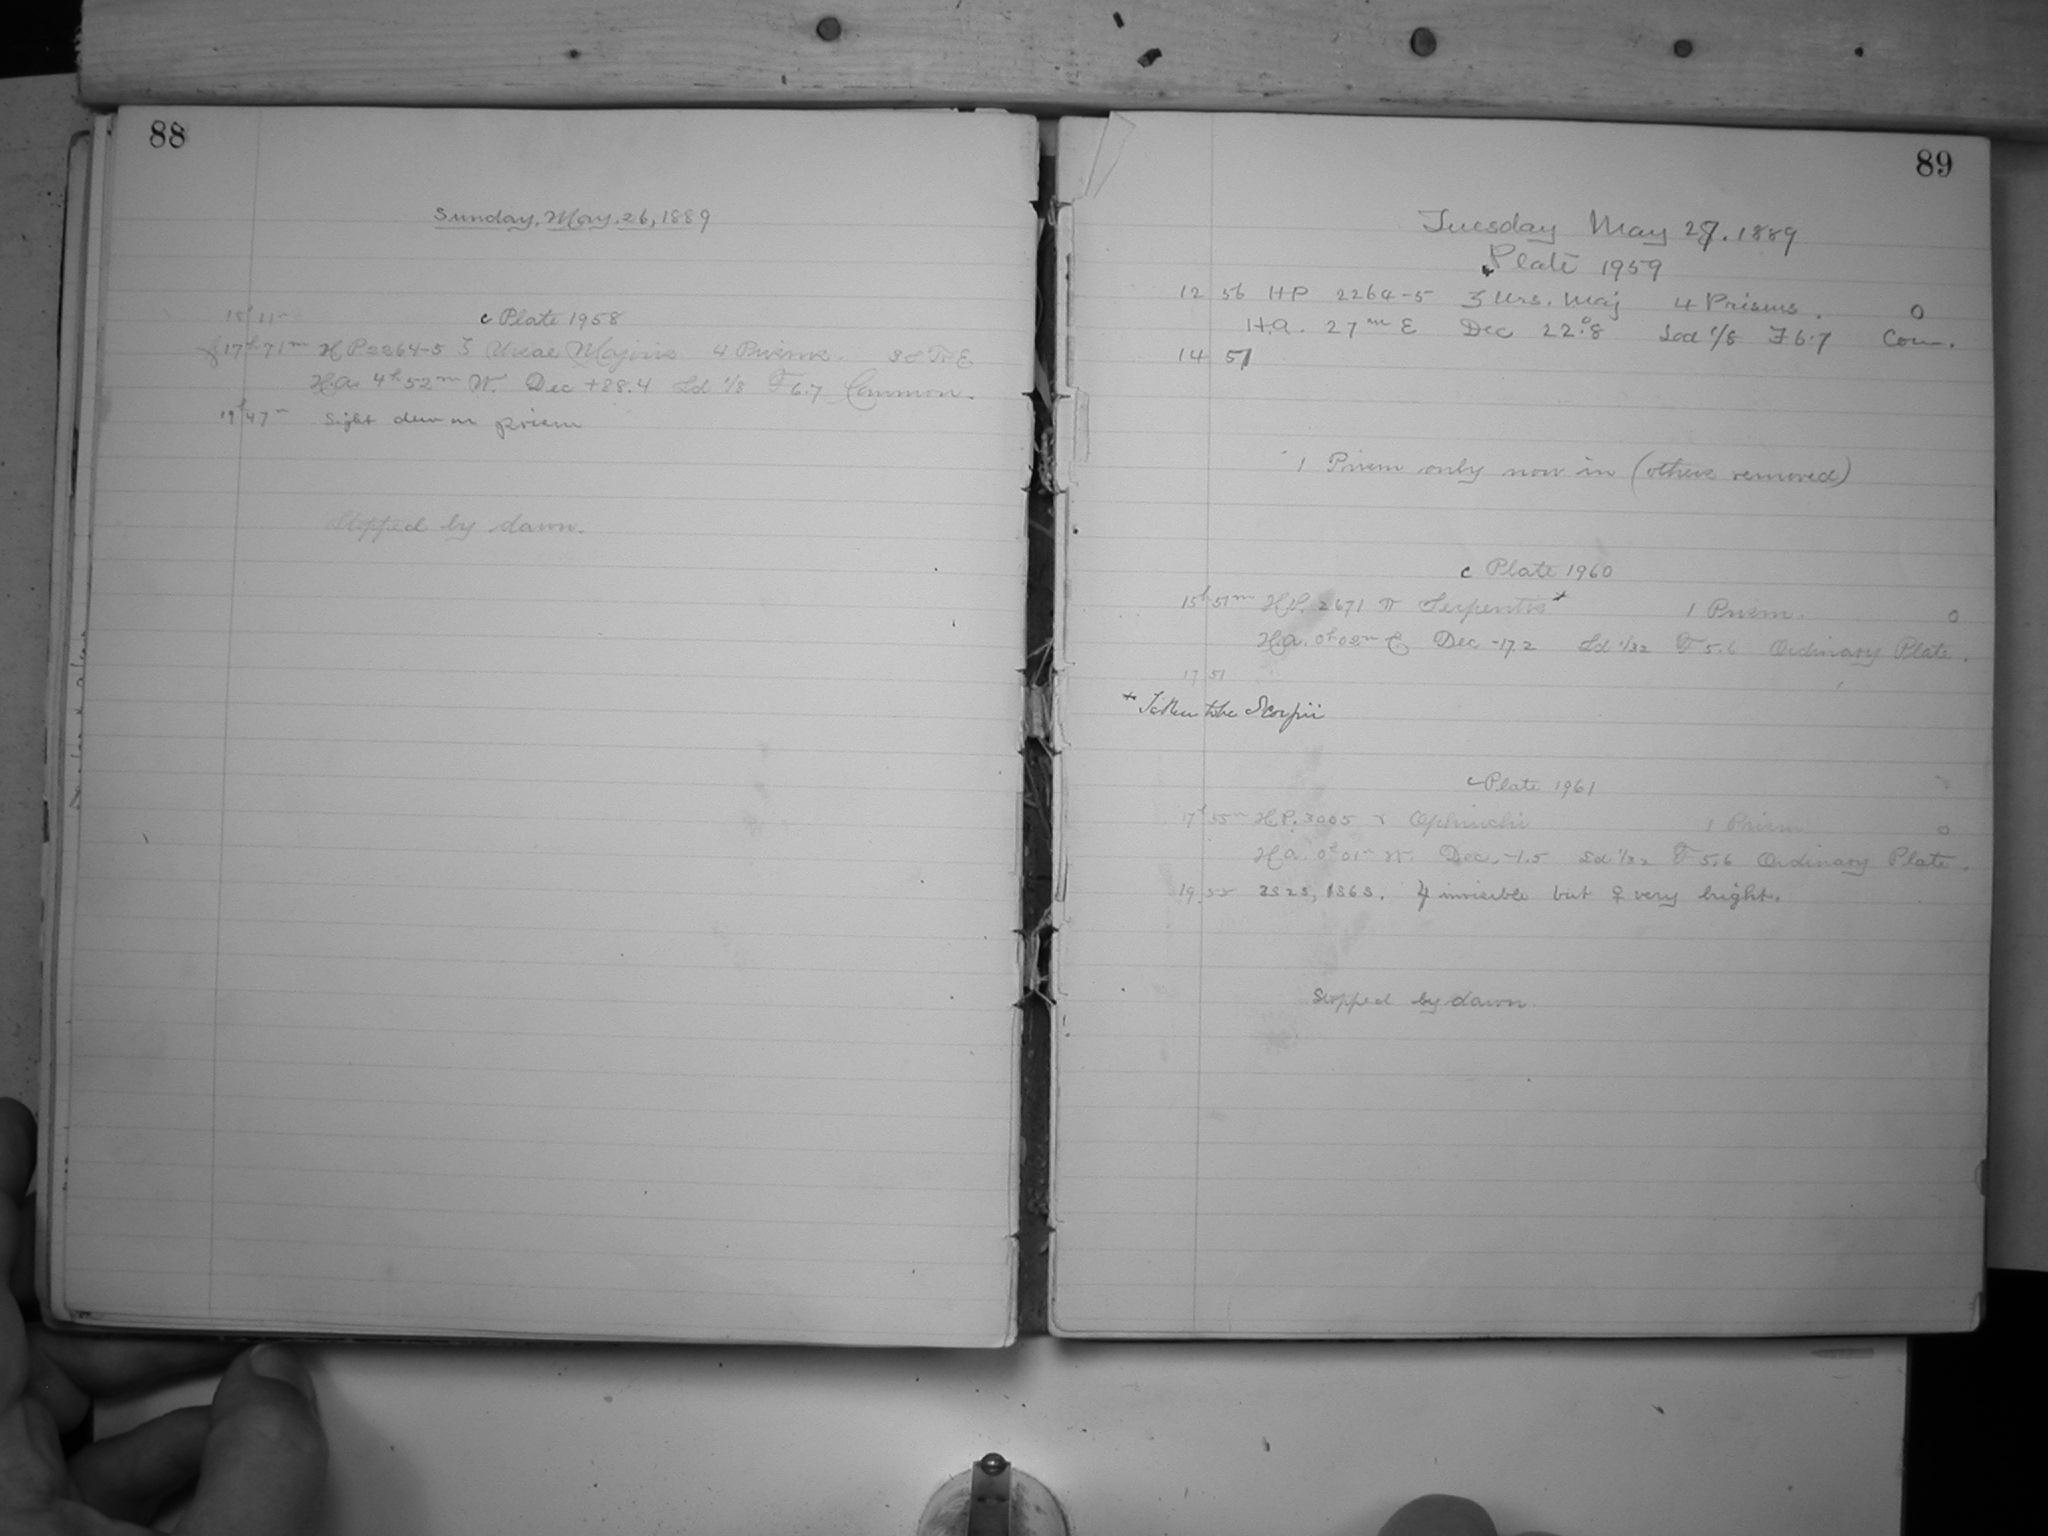 88
Sunday, May, 26, 1889
c Plate 1958
17h 71m H P 2264-5 ζ Ursae Majoris 4 Prisms.
H.a. 4h 52m W. Dec +28.4 Sd 1/8 F 6.7 Common.
19h 47m Light dew on prism
Stopped by dawn.
89
Tuesday May 27. 1889
Plate 1959
12 56 HP 2264-5 ζ Urs. Maj 4 Prisms. 0
H.a. 27m E Dec 22°.8 Sed 1/8 F 6.7 Com.
14 51
1 Prism only now in (others removed)
c Plate 1960
15h 51m H.P. 2671 π Serpentis* 1 Prism. 0
H.a. 0h 02m E Dec -17.2 Sd 1/32 F 5.6 Ordinary Plate.
17 51
* Taken to be Scorpii
c Plate 1961
17h 55m H.P. 3005 γ Ophiuchi 1 Prism 0
H.a. 0h 01m W. Dec. -1.5 Sd 1/32 F 5.6 Ordinary Plate.
19 55 2S2S, 1S6S. ♃ invisible but ♀ very bright.
Stopped by dawn.